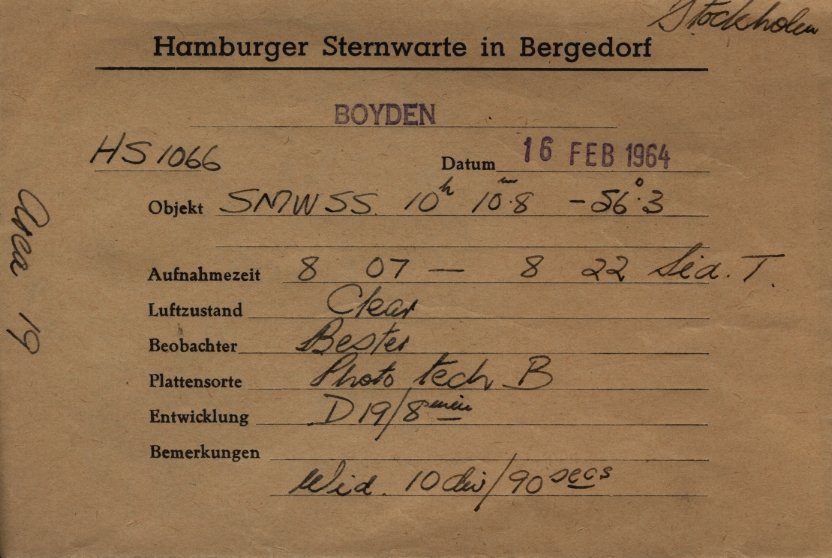 Stockholm
Hamburger Sternwarte in Bergedorf
BOYDEN
HS 1066
Datum 16 FEB 1964
Objekt SMWSS. 10h 10m.8 -56°.3
Aufnahmezeit 8 07 — 8 22 Sid. T.
Luftzustand Clear
Beobachter Bester
Plattensorte Photo tech B
Entwicklung D19/8 min
Bemerkungen
Wid. 10 div/90 secs
Area 19